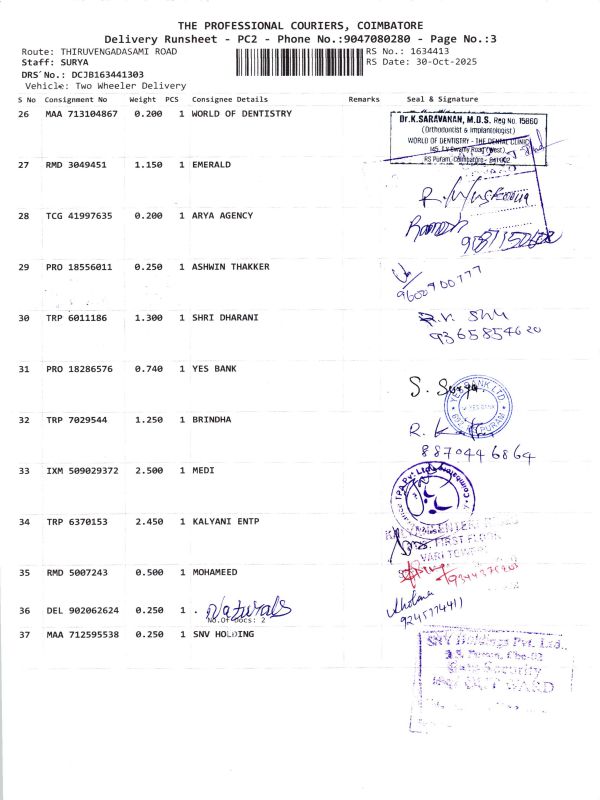 THE PROFESSIONAL COURIERS, COIMBATORE
Delivery Runsheet - PC2 - Phone No.:9047080280 - Page No.:3
Route: THIRUVENGADASAMI ROAD
RS No.: 1634413
Staff: SURYA
RS Date: 30-Oct-2025
DRS No.: DCJB163441303
Vehicle: Two Wheeler Delivery
S No Consignment No Weight PCS Consignee Details Remarks Seal & Signature
26 MAA 713104867 0.200 1 WORLD OF DENTISTRY
Dr.K.SARAVANAN, M.D.S. Reg No. 15860
(Orthodontist & Implantologist)
WORLD OF DENTISTRY - THE DENTAL CLINIC
RS Puram, Coimbatore -
27 RMD 3049451 1.150 1 EMERALD
28 TCG 41997635 0.200 1 ARYA AGENCY
Ramesh
29 PRO 18556011 0.250 1 ASHWIN THAKKER
9600900777
30 TRP 6011186 1.300 1 SHRI DHARANI
9365854620
31 PRO 18286576 0.740 1 YES BANK
S. Surya
YES BANK LTD
YES BANK
32 TRP 7029544 1.250 1 BRINDHA
8870446864
33 IXM 509029372 2.500 1 MEDI
TPA Pvt. Ltd
Coimbatore
34 TRP 6370153 2.450 1 KALYANI ENTP
FIRST FLOOR
35 RMD 5007243 0.500 1 MOHAMEED
36 DEL 902062624 0.250 1 . Naturals
No.Of Docs: 2
9245774411
37 MAA 712595538 0.250 1 SNV HOLDING
SNV Holdings Pvt. Ltd.,
R.S. Puram, Cbe-02
Gate Security
OUT WARD